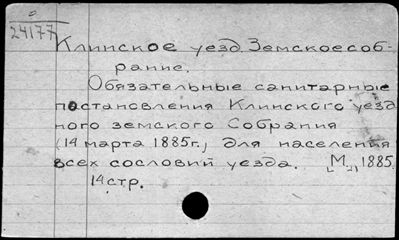 24177
Клинское уезд. Земское соб-
рание.
Обязательные санитарные
постановления Клинского уезд
ного земского Собрания
(14 марта 1885г.) для населения
всех сословий уезда. [М.], 1885.
14 стр.